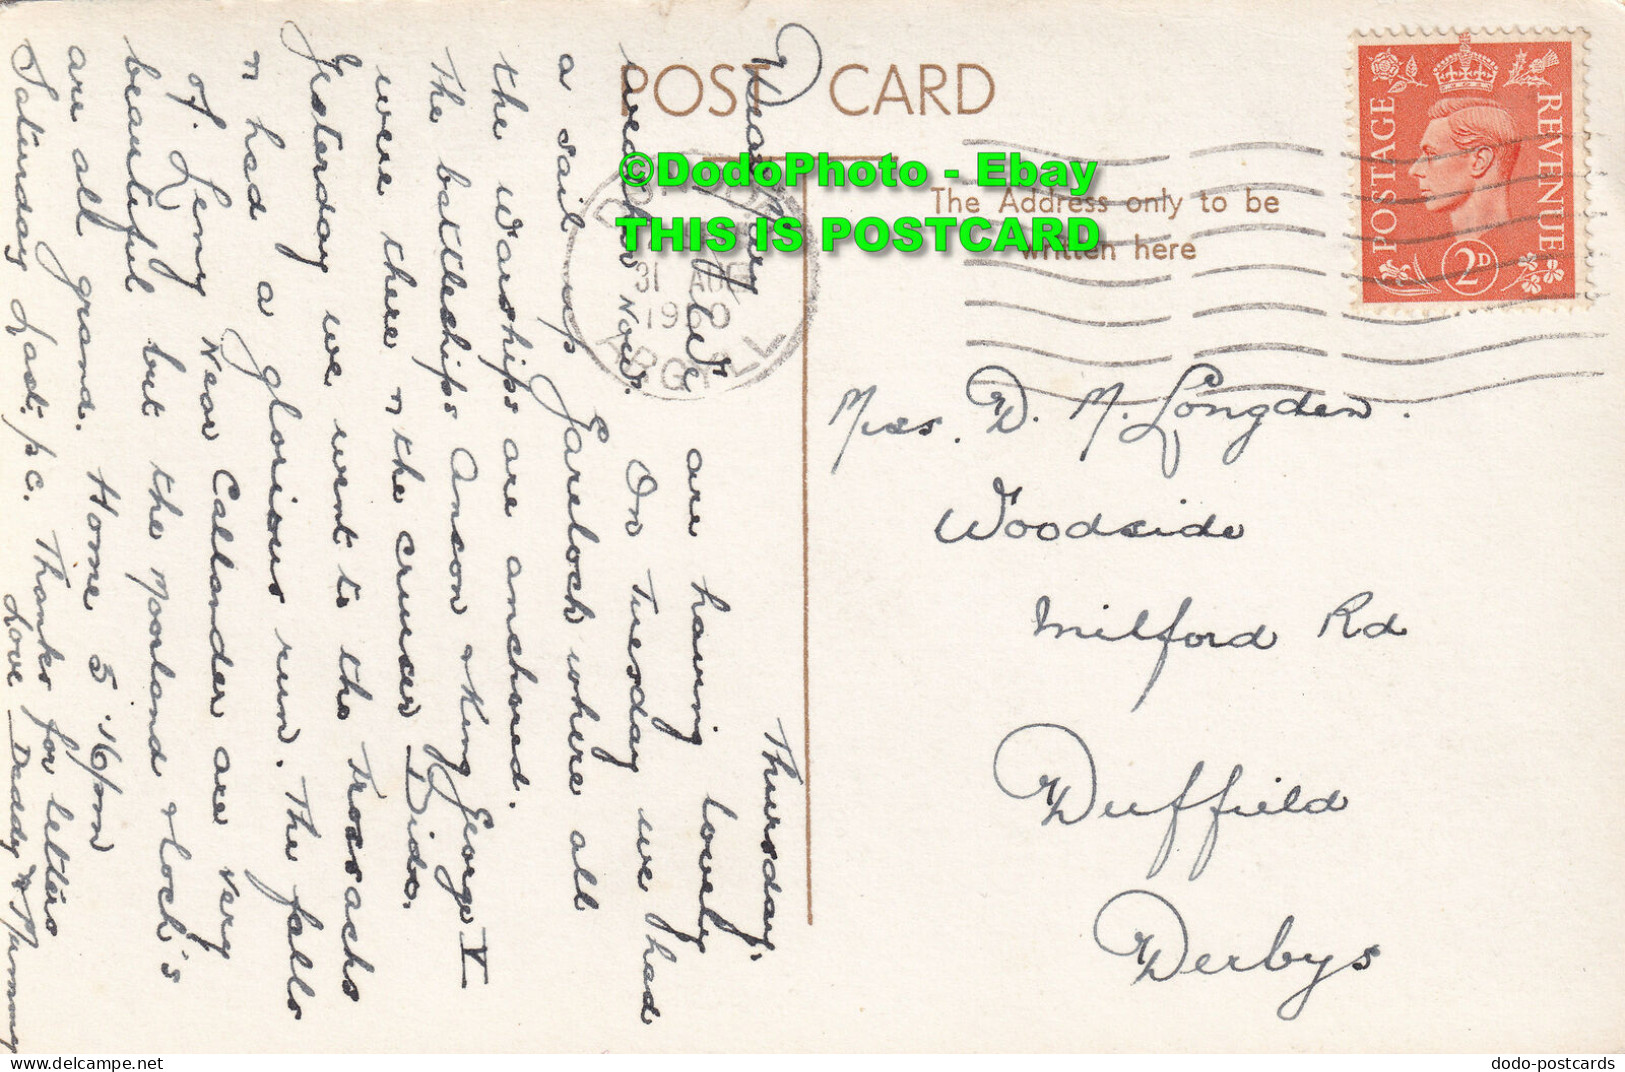 POST CARD
©DodoPhoto - Ebay
THIS IS POSTCARD
The Address only to be
written here
31 AUG
1950
ARGYLL
POSTAGE
REVENUE
2D
Miss. D. M. Longden.
Woodside
Milford Rd
Duffield
Derbys
Thursday.
Dear Mary
We are having lovely
weather now. On Tuesday we had
a sail up Gareloch where all
the warships are anchored.
The battleships Anson & King George V
were there & the cruiser Dido.
Yesterday we went to the Trossachs
& had a glorious run. The falls
of Leny near Callander are very
beautiful but the moorland & loch's
are all grand. Home 5.16/pm
Saturday. Last p.c. Thanks for letters
Love Daddy & Mummy
dodo-postcards
DELCAMPE